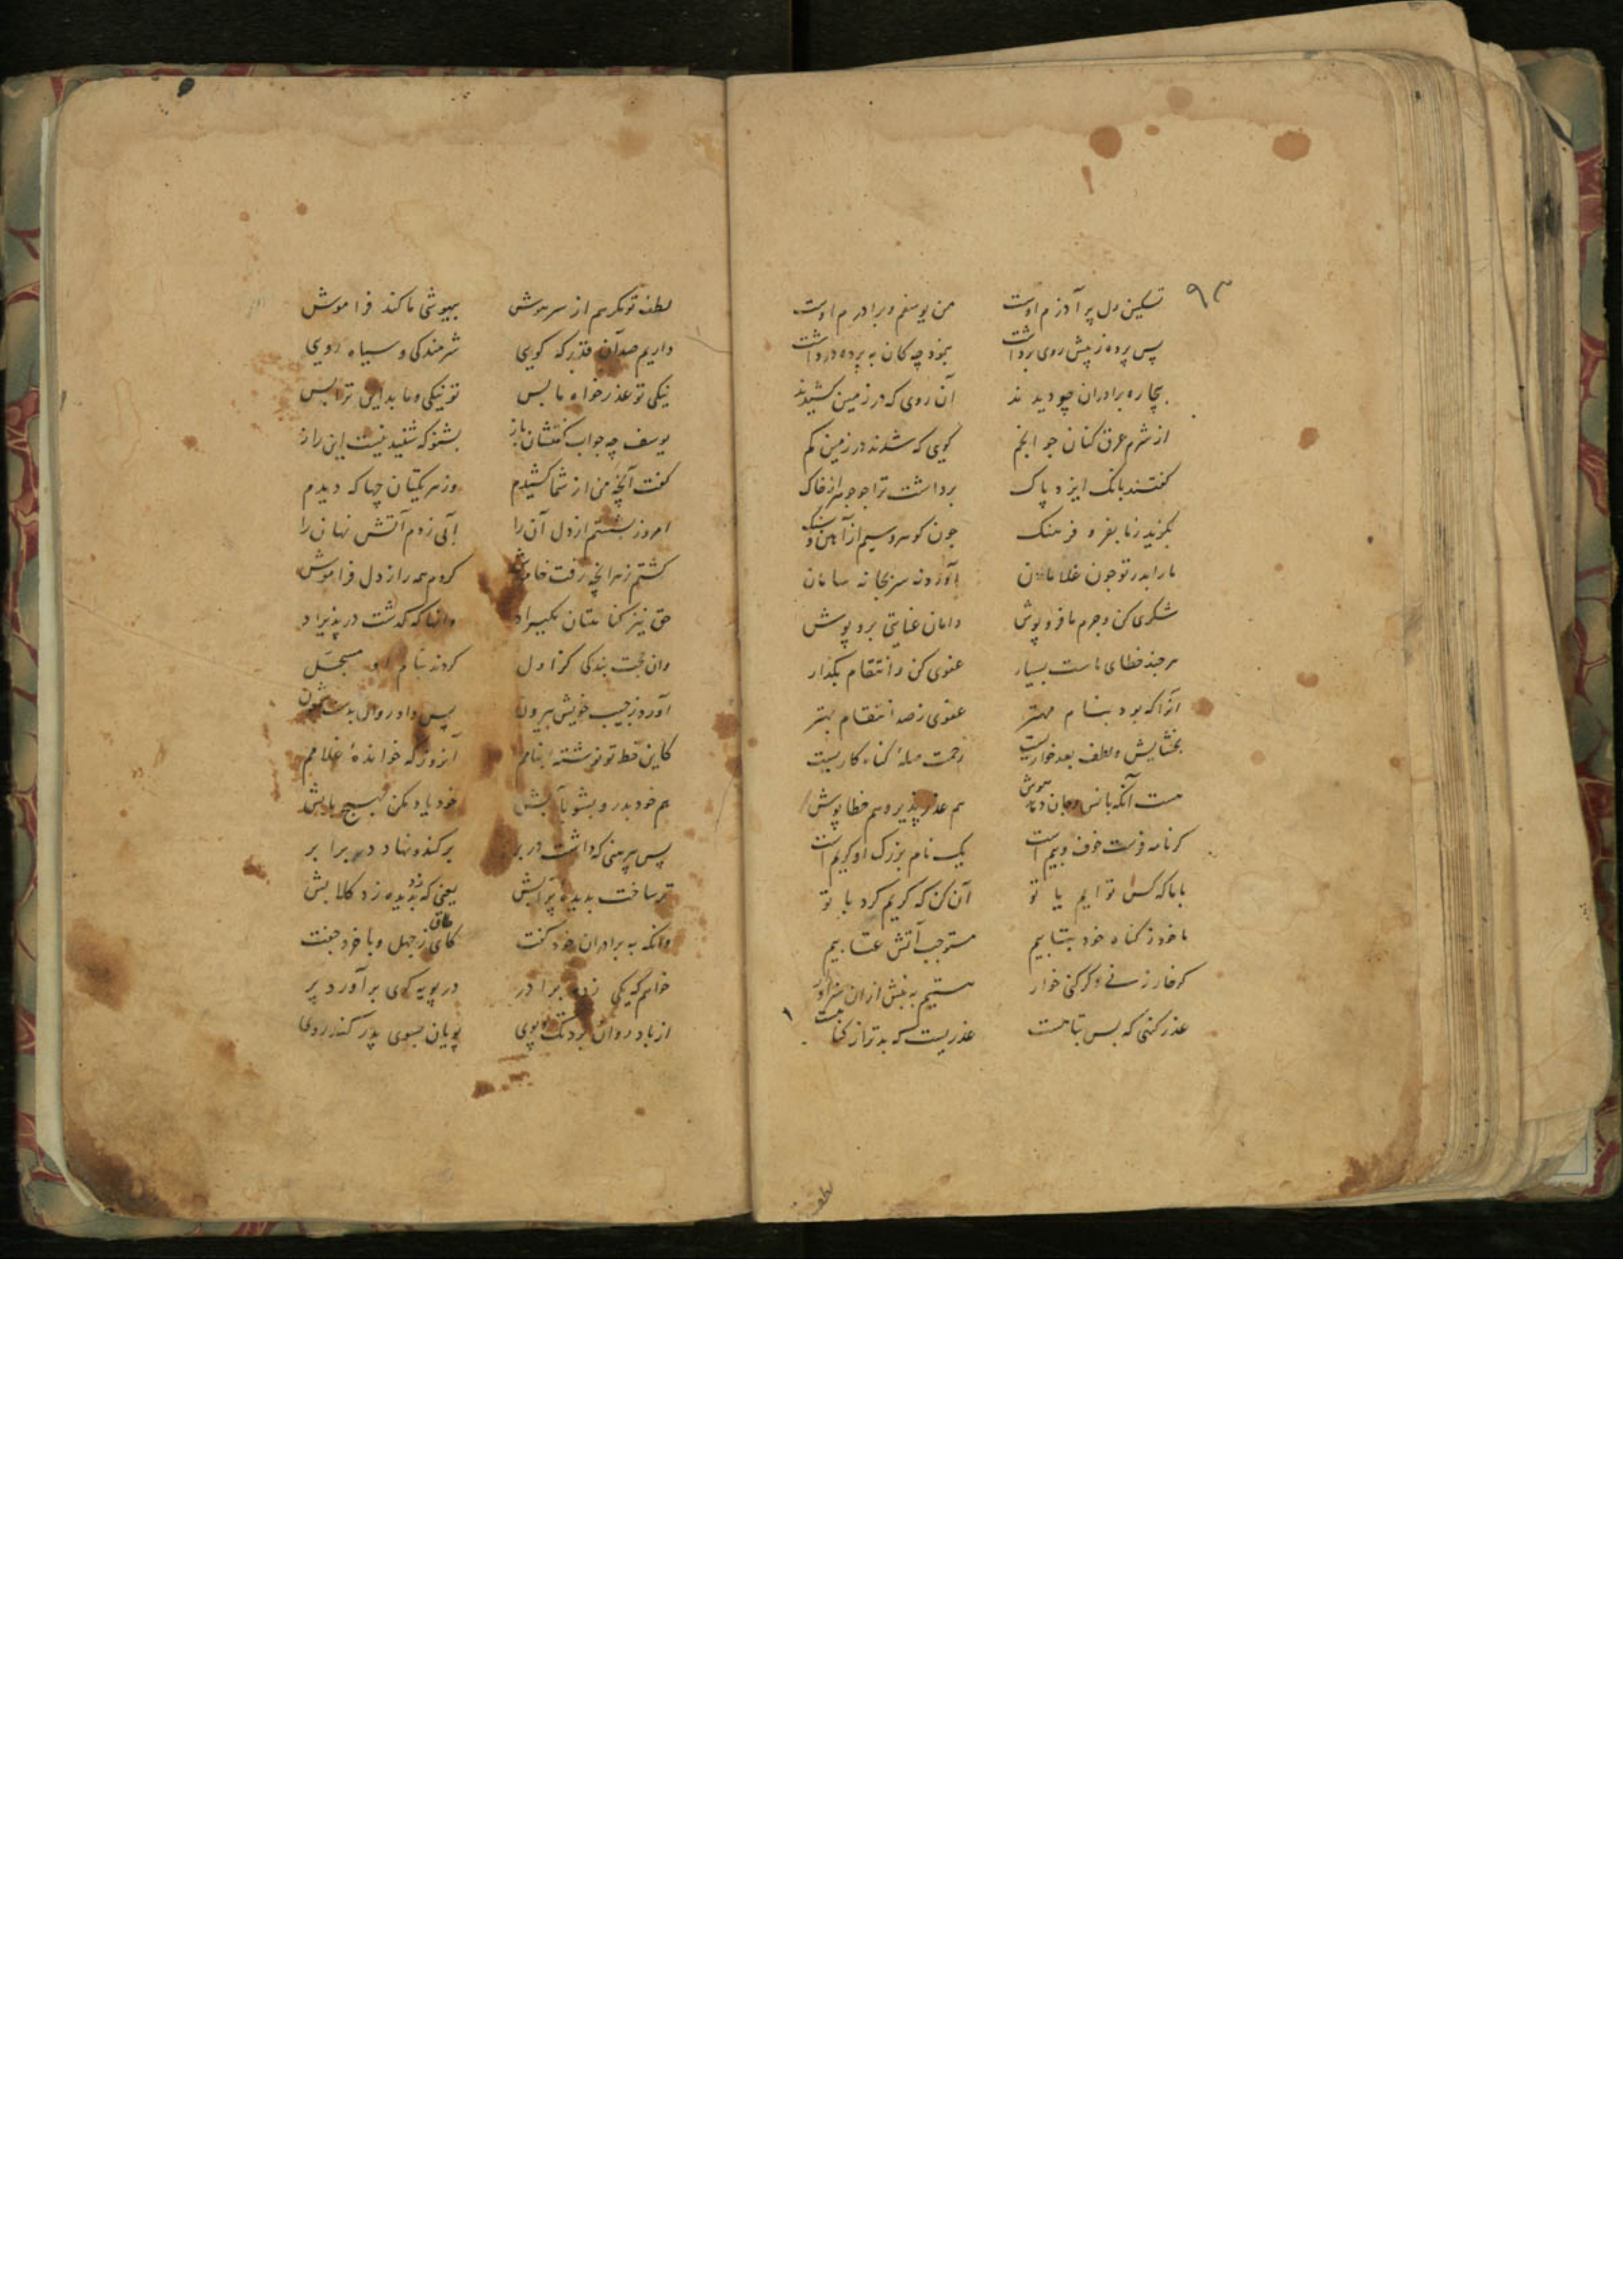 ۹۳
تسکین دل پر آذرم اوست من یوسفم و برادرم اوست
پس پرده ز پیش روی برداشت بنمود چه کان به پرده در داشت
بیچاره برادران چو دیدند آن روی که در زمین کشیدند
از شرم عرق کنان جو انجم گویی که شدند در زمین گم
کفتند بانک ایزد پاک برداشت ترا جو جوهر از خاک
بگزید ز ما بفر و فرهنگ جون گوهر و سیم از آهن و سنگ
ما را بدر تو جون غلامان آورد نه سر بجا نه سامان
شکری کن و جرم ما فرو پوش دامان عنایتی برو پوش
هر جند خطای ماست بسیار عفوی کن و انتقام بگذار
آنرا که بود بنام مهتر عفوی ز صد انتقام بهتر
بخشایش و لطف بعد خواریست رحمت صلهٔ گناه کاریست
هست آنکه بانس و جان دهد هوش هم عذر پذیر و هم خطا پوش
کر نامه فرست خوف و بیم است یک نام بزرک او کریم است
با ما که کس توایم یا تو آن کن که کریم کرد با تو
ما خود ز کناه خود بتابیم مستوجب آتش عتابیم
کر خار زنی و کر کنی خوار هستیم به بیش از ان سزاوار
عذر کنی که بس تباهست عذریست که بدتر از کناهست
لطف تو مکر هم از سر هوش بیهوشی ما کند فراموش
داریم صد آن قدر که کویی شرمندکی و سیاه رویی
نیکی تو عذر خواه ما بس تو نیکی و ما بد این ترا بس
یوسف چه جواب کفتشان باز بشنو که شنیدنیست این راز
کفت آنچه من از شما کشیدم وز هر یکتان چها که دیدم
امروز بشستم از دل آن را آبی زدم آتش نهان را
کشتم ز هر آنچه رفت خاموش کردم همه را ز دل فراموش
حق نیز کناهتان مکیراد وانها که کذشت در پذیراد
وان حجت بندکی کز اول کردند بنام او مسجل
آورد ز جیب خویش بیرون پس داد روان بدست شمعون
کاین خط تو نوشته‌ای بنامم آنروز که خواندهٔ غلامم
هم خود بدر و بشو بآبش خود یاد مکن بهیچ بابش
پس پیرهنی که داشت در بر برکند و نهاد در برابر
تر ساخت بدیده پر آبش یعنی که بدیده زد کلابش
وانکه به برادران خود کفت کای طاق ز جهل و با خرد جفت
خواهم که یکی زده برادر در پویه کری بر آورد پر
از باد روان برد تک و پوی پویان بسوی پدر کند روی